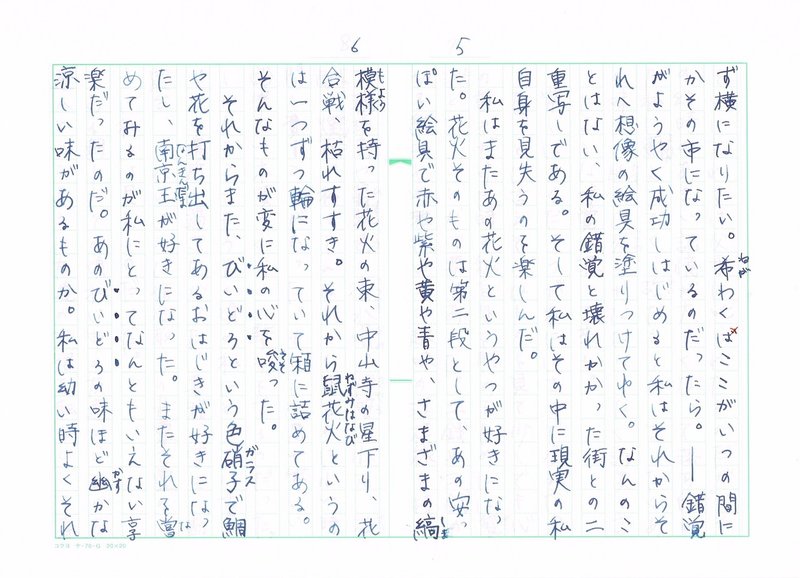 5
ず横になりたい。希わくばここがいつの間に
かその市になっているのだったら。――錯覚
がようやく成功しはじめると私はそれからそ
れへ想像の絵具を塗りつけてゆく。なんのこ
とはない、私の錯覚と壊れかかった街との二
重写しである。そして私はその中に現実の私
自身を見失うのを楽しんだ。
　私はまたあの花火というやつが好きになっ
た。花火そのものは第二段として、あの安っ
ぽい絵具で赤や紫や黄や青や、さまざまの縞
6
模様を持った花火の束、中山寺の星下り、花
合戦、枯れすすき。それから鼠花火というの
は一つずつ輪になっていて箱に詰めてある。
そんなものが変に私の心を唆った。
　それからまた、びいどろという色硝子で鯛
や花を打ち出してあるおはじきが好きになっ
たし、南京玉が好きになった。またそれを嘗
めてみるのが私にとってなんともいえない享
楽だったのだ。あのびいどろの味ほど幽かな
涼しい味があるものか。私は幼い時よくそれ
コクヨ ケ-70-G 20×20